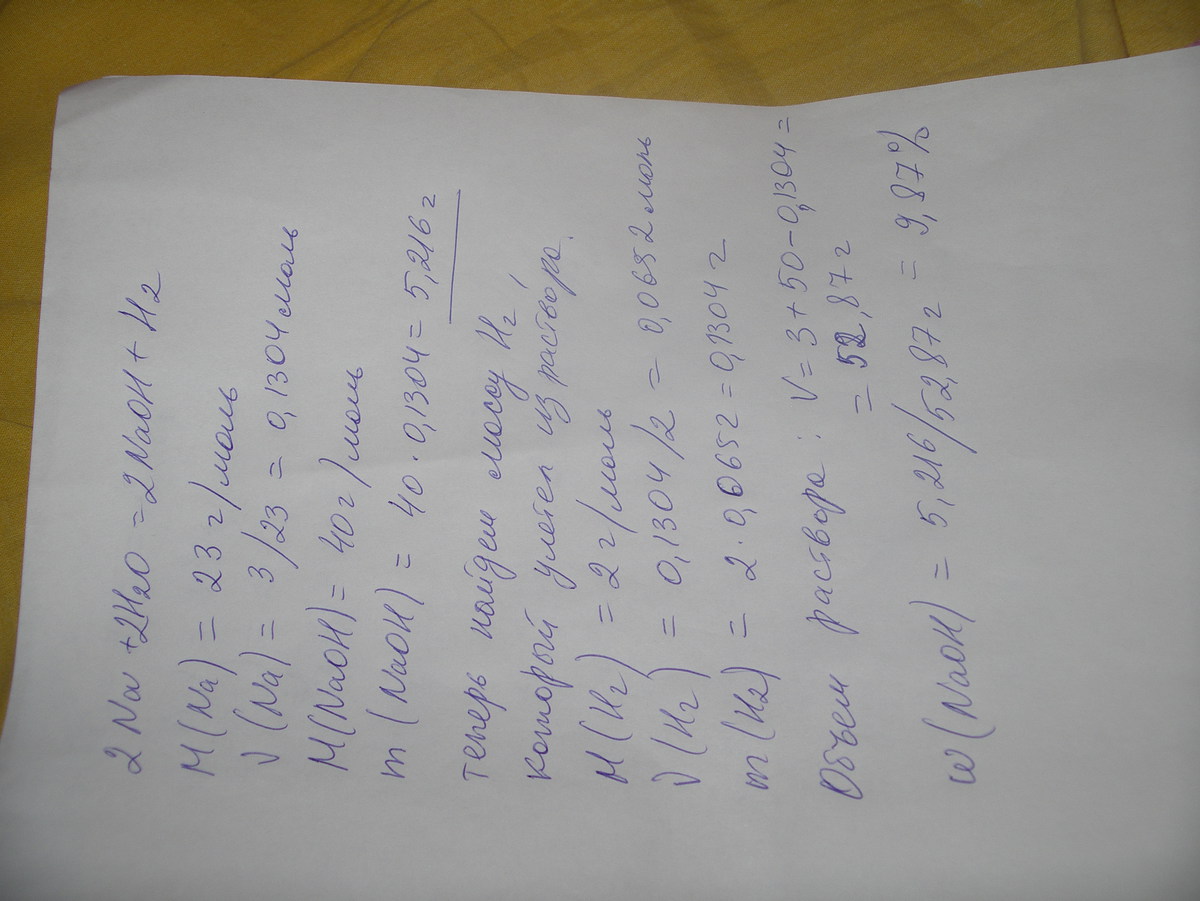 2Na + 2H2O = 2NaOH + H2
M(Na) = 23 г/моль
ν(Na) = 3/23 = 0,1304 моль
M(NaOH) = 40 г/моль
m(NaOH) = 40 · 0,1304 = 5,216 г
Теперь найдем массу H2,
который улетел из раствора.
M(H2) = 2 г/моль
ν(H2) = 0,1304/2 = 0,0652 моль
m(H2) = 2 · 0,0652 = 0,1304 г
Объем раствора: V = 3 + 50 - 0,1304 =
= 52,87 г
w(NaOH) = 5,216/52,87 г = 9,87%